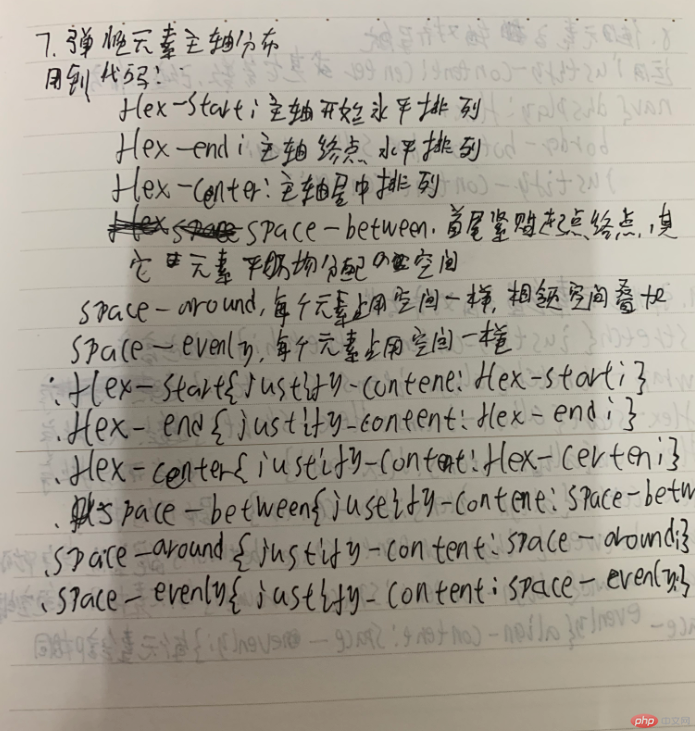 7. 弹性元素主轴分布
用到代码:
flex-start; 主轴开始水平排列
flex-end; 主轴终点水平排列
flex-center: 主轴居中排列
space-between, 首尾紧贴起点终点,其
它元素平均分配空间
space-around, 每个元素占用空间一样,相领空间叠加
space-evenly, 每个元素占用空间一样
.flex-start{justify-contene: flex-start;}
.flex-end{justify-content: flex-end;}
.flex-center{justify-content: flex-certen;}
.space-between{justify-contene: space-betw
.space-around{justify-content: space-around;}
.space-evenly{justify-content: space-evenly;}
php